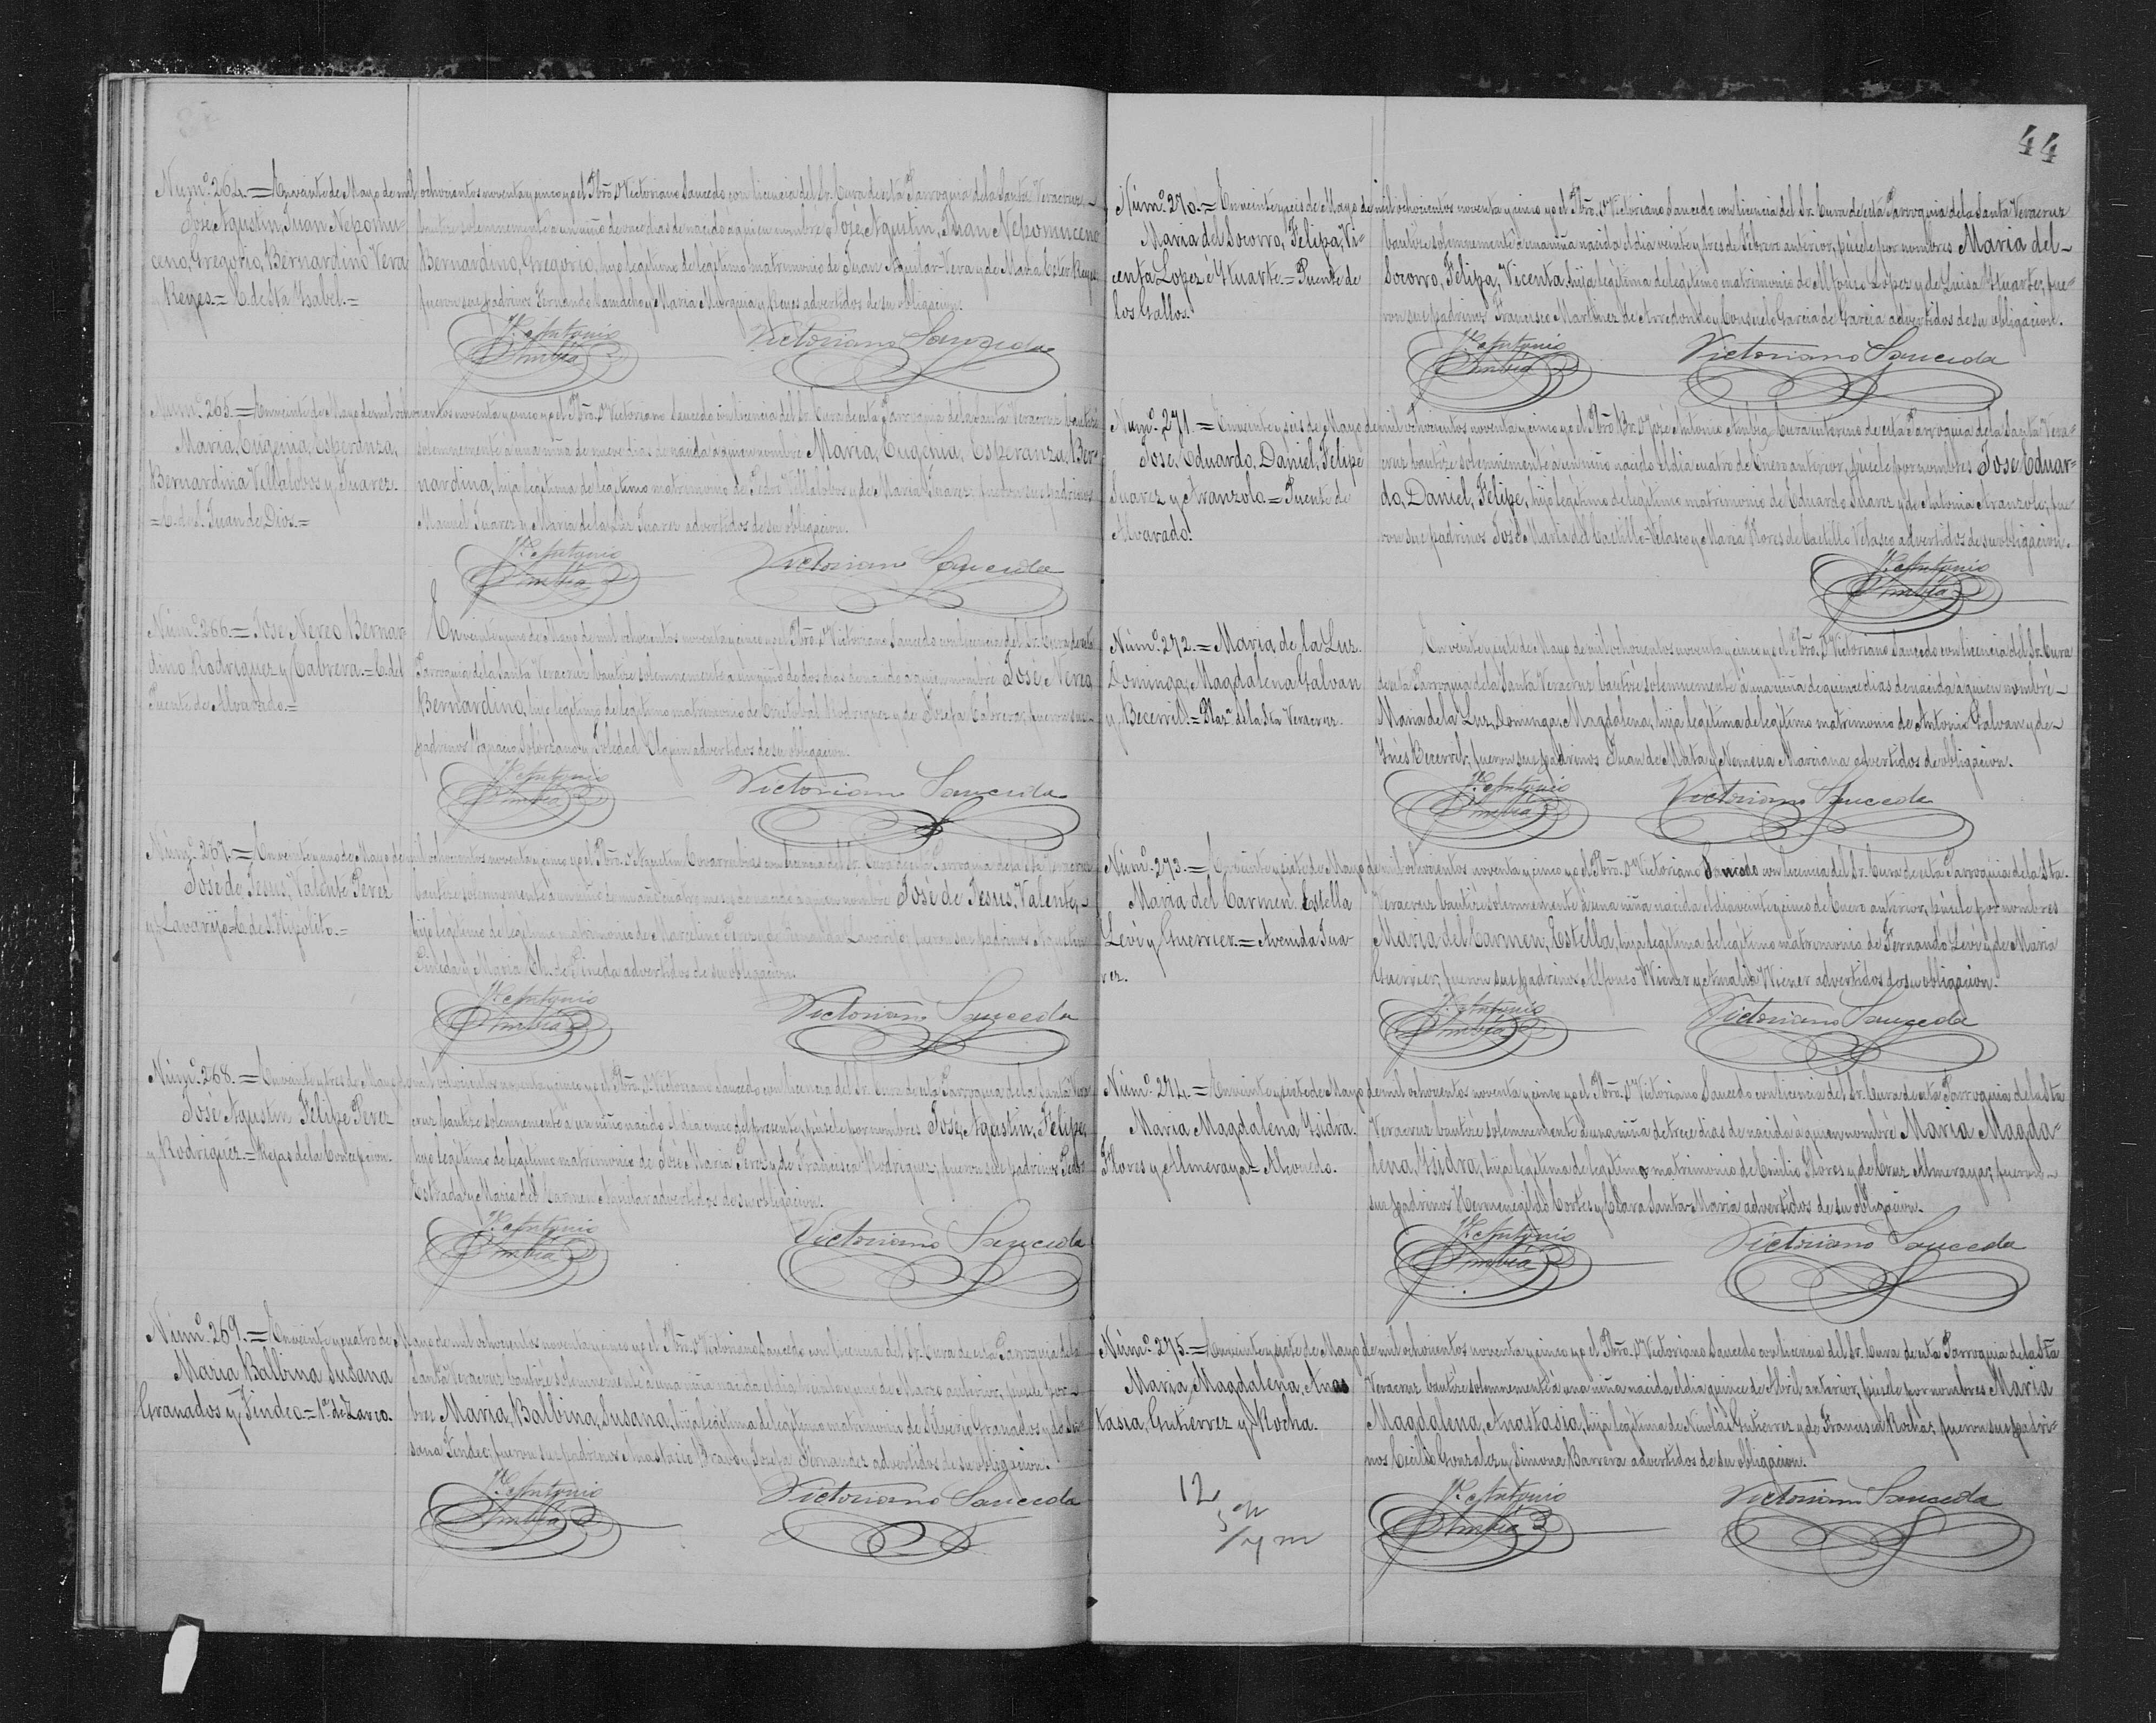 Núm.º 264.=En veinte de Mayo de mil ochocientos noventa y cinco yo el Pbro. D. Victoriano Saucedo con licencia del Sr. Cura de esta Parroquia de la Santa Veracruz
José, Agustin, Juan Nepomu-
ceno, Gregorio, Bernardino Vera
y Reyes.= C. de Sta. Ysabel.=
bauticé solemnemente á un niño de once dias de nacido á quien nombré José, Agustin, Juan Nepomuceno
Bernardino, Gregorio, hijo legítimo de legítimo matrimonio de Juan Aguilar Vera y de Maria Ester Reyes
fueron sus padrinos Fernando Camacho y Maria Murguia y Reyes advertidos de su obligacion.
Jé. Antonio
Ambía
Victoriano Sauceda
Núm.º 265.=En veinte de Mayo de mil ochocientos noventa y cinco yo el Pbro. D. Victoriano Saucedo con licencia del Sr. Cura de esta Parroquia de la Santa Veracruz bauticé
Maria, Eugenia, Esperanza,
Bernardina Villalobos y Juarez.
=C. de S. Juan de Dios.=
solemnemente á una niña de nueve dias de nacida á quien nombré Maria, Eugenia, Esperanza, Ber-
nardina, hija legítima de legítimo matrimonio de Pedro Villalobos y de Maria Juarez; fueron sus padrinos
Manuel Juarez y Maria de la Luz Juarez advertidos de su obligacion.
Jé. Antonio
Ambía
Victoriano Sauceda
Núm.º 266.= José Nereo Bernar
dino Rodriguez y Cabrera.=C. del
Puente de Alvarado.=
En veinte y uno de Mayo de mil ochocientos noventa y cinco yo el Pbro. D. Victoriano Saucedo con licencia del Sr. Cura de esta
Parroquia de la Santa Veracruz bauticé solemnemente á un niño de dos dias de nacido á quien nombré José Nereo
Bernardino, hijo legítimo de legítimo matrimonio de Cristobal Rodriguez y de Josefa Cabrera; fueron sus
padrinos Ygnacio Solorzano y Soledad Olguin advertidos de su obligacion.
Jé. Antonio
Ambía
Victoriano Sauceda
Núm.º 267.=En veinte y uno de Mayo de mil ochocientos noventa y cinco yo el Pbro. D. Agustin Covarrubias con licencia del Sr. Cura de esta Parroquia de la Sta. Veracruz
José de Jesus, Valente Perez
y Lavarijo.=C. de S. Hipolito.=
bauticé solemnemente á un niño de un año cuatro meses de nacido á quien nombré José de Jesus, Valente,
hijo legítimo de legítimo matrimonio de Marcelino Perez y de Fernanda Lavarijo; fueron sus padrinos Agustin
Pineda y Maria Ch. de Pineda advertidos de su obligacion.
Jé. Antonio
Ambía
Victoriano Sauceda
Núm.º 268.=En veinte y tres de Mayo de mil ochocientos noventa y cinco yo el Pbro. D. Victoriano Saucedo con licencia del Sr. Cura de esta Parroquia de la Santa Vera
José Agustin Felipe Perez
y Rodriguez.=Rejas de la Concepcion.
cruz bauticé solemnemente á un niño nacido el dia cinco del presente, púsele por nombres José, Agustin, Felipe,
hijo legítimo de legítimo matrimonio de José Maria Perez y de Francisca Rodriguez; fueron sus padrinos Pedro
Estrada y Maria del Carmen Aguilar advertidos de su obligacion.
Jé. Antonio
Ambía
Victoriano Sauceda
Núm.º 269.=En veinte y cuatro de Mayo de mil ochocientos noventa y cinco yo el Pbro. D. Victoriano Saucedo con licencia del Sr. Cura de esta Parroquia de la
Maria Balbina Susana
Granados y Findeo.=1ª de Zarco.
Santa Veracruz bauticé solemnemente á una niña nacida el dia treinta y uno de Marzo anterior, púsele por nom-
bres Maria, Balbina, Susana, hija legítima de legítimo matrimonio de Silverio Granados y de Su-
sana Findeo; fueron sus padrinos Anastasio Bravo y Josefa Fernandez advertidos de su obligacion.
Jé. Antonio
Ambía
Victoriano Sauceda
44
Núm.º 270.=En veinte y seis de Mayo de mil ochocientos noventa y cinco yo el Pbro. D. Victoriano Saucedo con licencia del Sr. Cura de esta Parroquia de la Santa Veracruz
Maria del Socorro, Felipa, Vi-
centa Lopez é Ytuarte.=Puente de
los Gallos.
bauticé solemnemente á una niña nacida el dia veinte y tres de Febrero anterior, púsele por nombres Maria del-
Socorro, Felipa, Vicenta, hija legítima de legítimo matrimonio de Alfonso Lopez y de Luisa Ytuarte; fue-
ron sus padrinos Francisco Martinez de Arredondo y Consuelo Garcia de Garcia advertidos de su obligacion.
Jé. Antonio
Ambía
Victoriano Sauceda
Núm.º 271.=En veinte y seis de Mayo de mil ochocientos noventa y cinco yo el Pbro. Br. D. José Antonio Ambía Cura interino de esta Parroquia de la Santa Vera-
José, Eduardo, Daniel, Felipe
Suarez y Aranzolo.=Puente de
Alvarado.
cruz bauticé solemnemente á un niño nacido el dia cuatro de Enero anterior, púsele por nombres José Eduar-
do, Daniel, Felipe, hijo legítimo de legítimo matrimonio de Eduardo Suarez y de Antonia Aranzolo; fue
ron sus padrinos José Maria del Castillo Velasco y Maria Flores de Castillo Velasco advertidos de su obligacion.
Jé. Antonio
Ambía
Núm.º 272.=Maria de la Luz.
Dominga, Magdalena Galvan
y Becerril.=Plaz.ª de la Sta. Veracruz.
En veinte y siete de Mayo de mil ochocientos noventa y cinco yo el Pbro. D. Victoriano Saucedo con licencia del Sr. Cura
de esta Parroquia de la Santa Veracruz bauticé solemnemente á una niña de quince dias de nacida á quien nombré-
Maria de la Luz, Dominga, Magdalena, hija legítima de legítimo matrimonio de Antonio Galvan y de-
Ynés Becerril; fueron sus padrinos Juan de Mata y Nemecia Marciana advertidos de obligacion.
Jé. Antonio
Ambía
Victoriano Sauceda
Núm.º 273.=En veinte y siete de Mayo de mil ochocientos noventa y cinco yo el Pbro. D. Victoriano Saucedo con licencia del Sr. Cura de esta Parroquia de la Sta.
Maria del Carmen Estella
Leví y Guerrier.=Avenida Jua-
rez.
Veracruz bauticé solemnemente á una niña nacida el dia veinte y cinco de Enero anterior, púsele por nombres
Maria del Carmen, Estella, hija legítima de legítimo matrimonio de Fernando Leví y de Maria
Guerrier; fueron sus padrinos Alfonso Wiener y Amalia Wiener advertidos de su obligacion.
Jé. Antonio
Ambía
Victoriano Sauceda
Núm.º 274.=En veinte y siete de Mayo de mil ochocientos noventa y cinco yo el Pbro. D. Victoriano Saucedo con licencia del Sr. Cura de esta Parroquia de la Sta
Maria Magdalena Ysidra.
Flores y Almeraya.=Alconedo.
Veracruz bauticé solemnemente á una niña de trece dias de nacida á quien nombré Maria Magda-
lena, Ysidra, hija legítima de legítimo matrimonio de Emilio Flores y de Cruz Almeraya; fueron-
sus padrinos Hermenegildo Cortés y Clara Santa Maria advertidos de su obligacion.
Jé. Antonio
Ambía
Victoriano Sauceda
Núm.º 275.=En veinte y siete de Mayo de mil ochocientos noventa y cinco yo el Pbro. D. Victoriano Saucedo con licencia del Sr. Cura de esta Parroquia de la Sta
Maria, Magdalena, Anas
tasia, Gutierrez y Rocha.
Veracruz bauticé solemnemente á una niña nacida el dia quince de Abril anterior, púsele por nombres Maria
Magdalena, Anastasia, hija legítima de Nicolás Gutierrez y de Francisca Rocha; fueron sus padri-
nos Cecilio Gonzalez y Simona Barrera advertidos de su obligacion.
12
Jé. Antonio
Ambía
Victoriano Sauceda